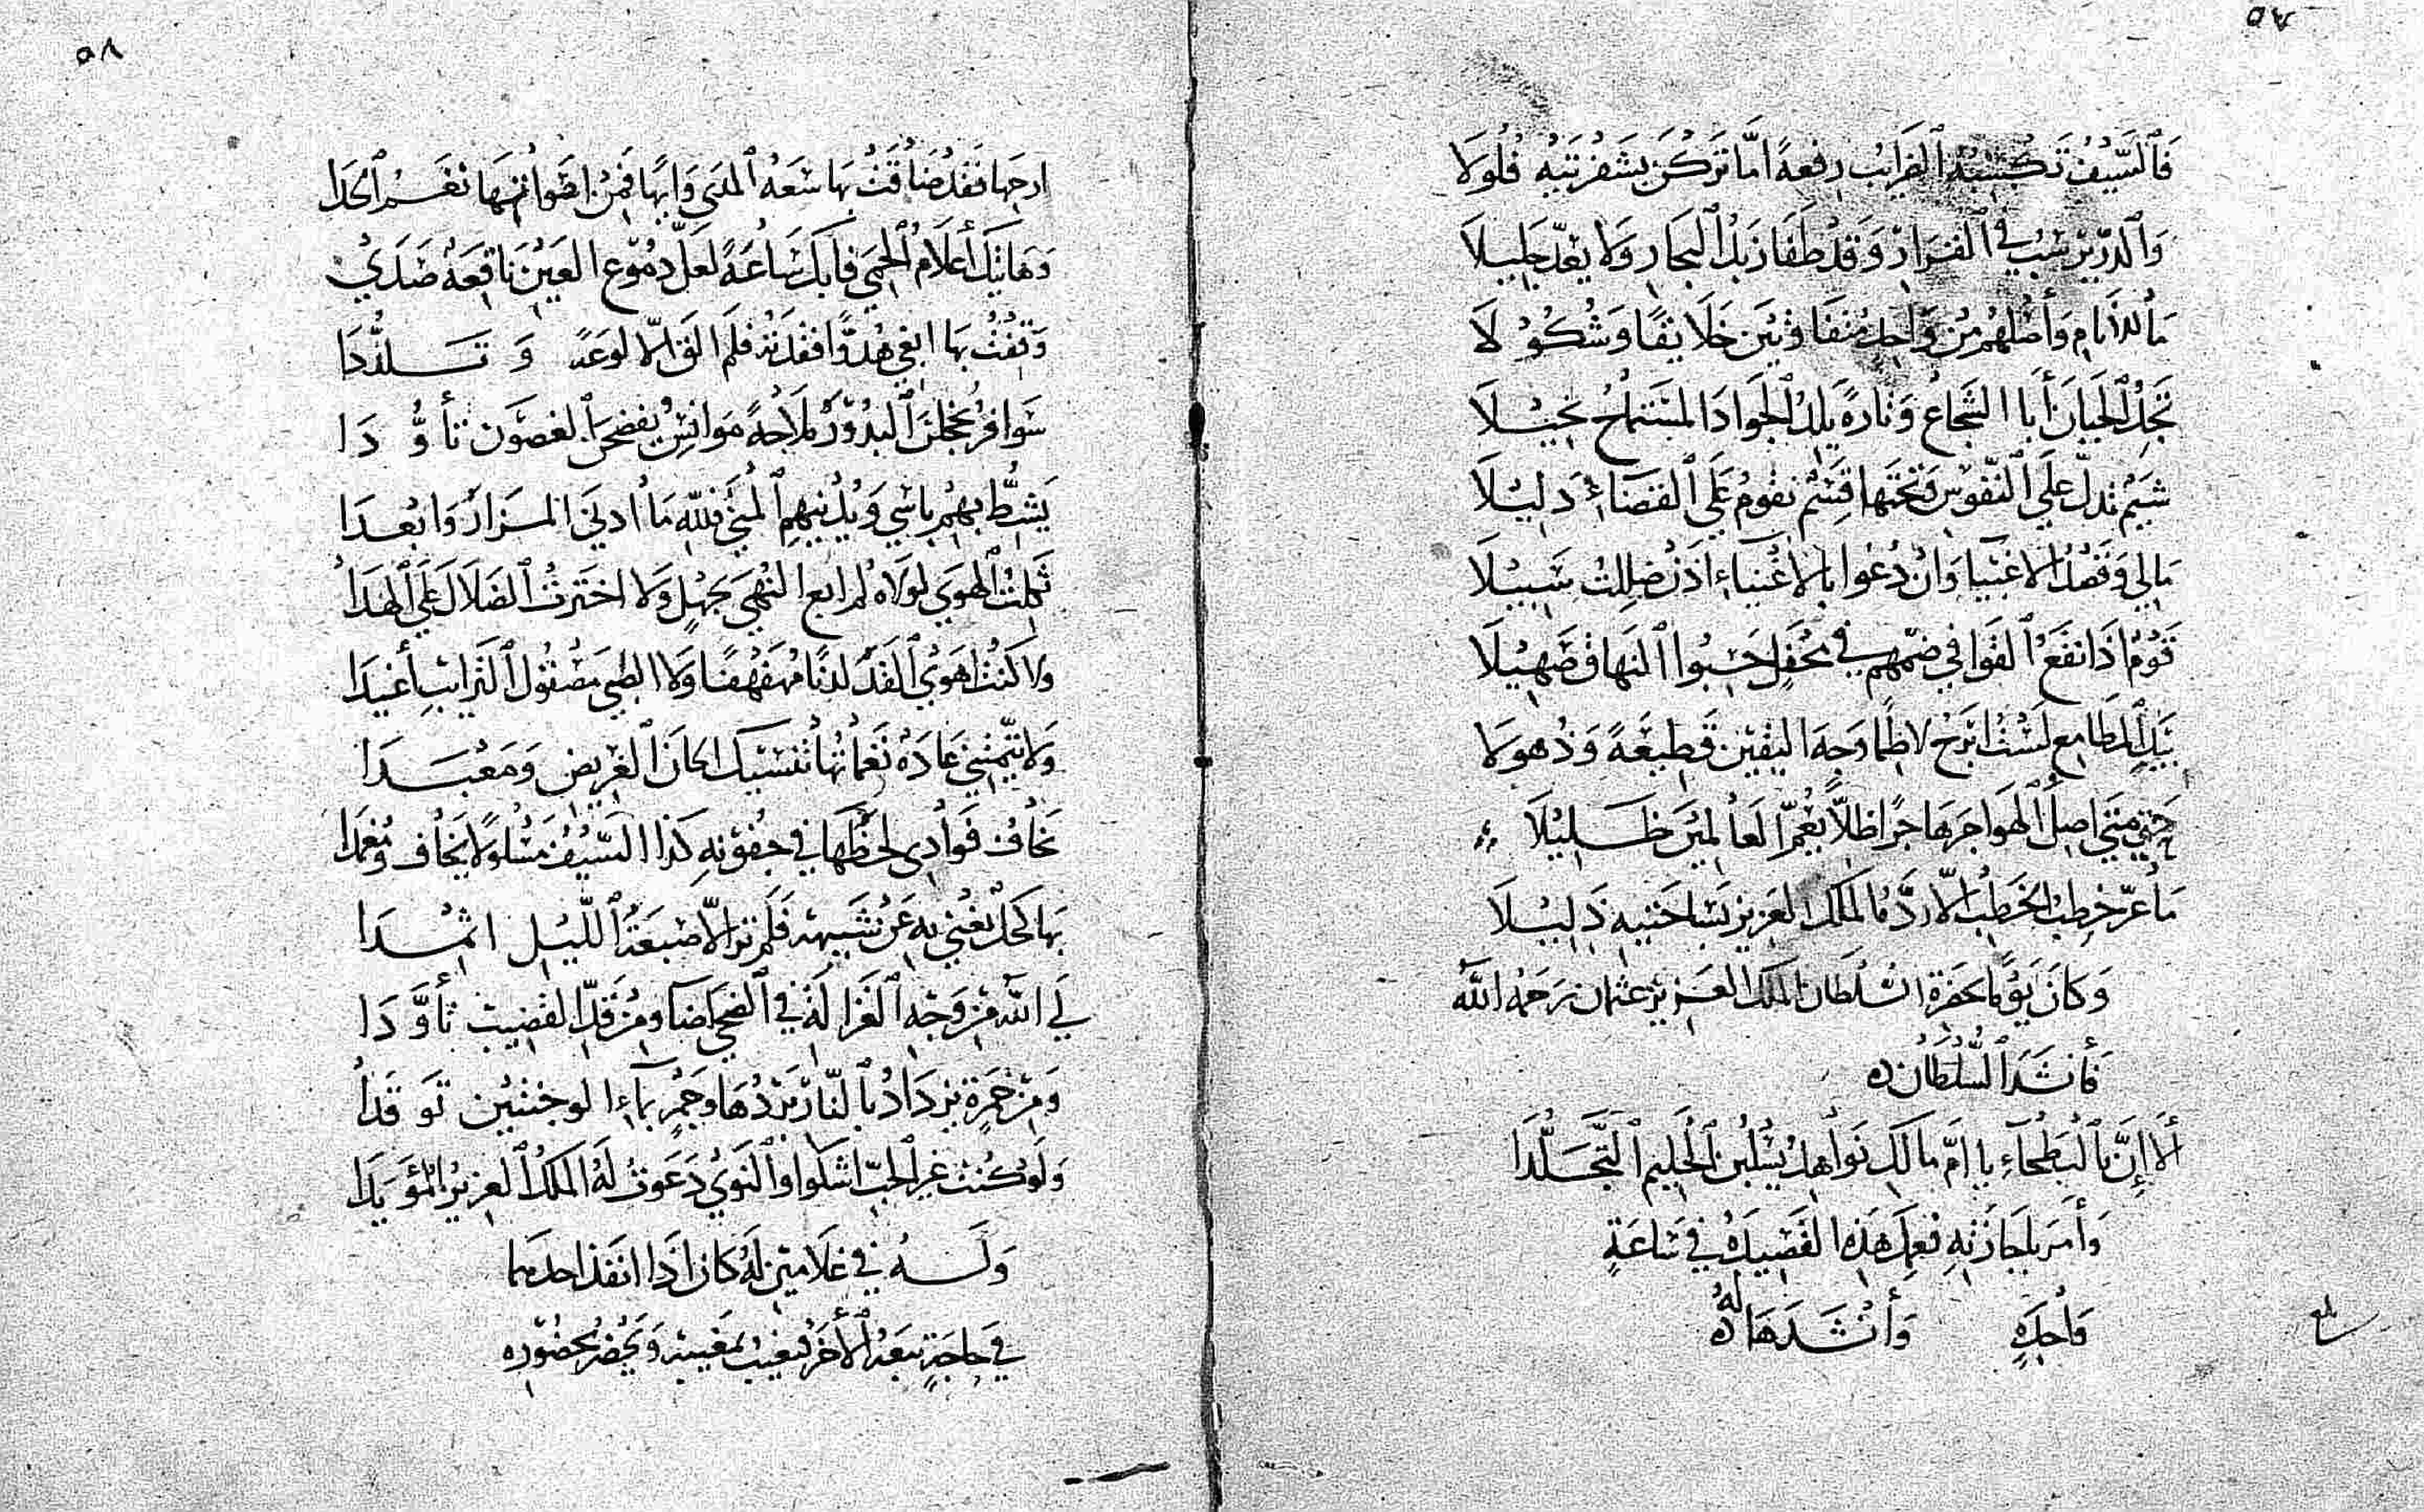 ٥٧
فَالسَّيْفُ تَكْسِبُهُ الضَّرَائبُ رِفعةً امَّا تَرَكْنَ بِشَفْرَتَيْهِ فُلُولَا
وَالدُّرّ يَرْسُبُ في القَرَارِ وَقَدْ طَفَا زَبَدُ البِحَارِ وَلا يُعَدّ جَلِيلَا
مَا للأنَامِ وَأصْلُهُمْ مِنْ وَاحِدٍ مُتَفَاوِتينَ خَلَائِقًا وَشُكُوْلَا
تَجِدُ الجَبَانَ أبَا الشُّجَاعُ وَتَارةً يَلِدُ الجَوَادَ المُسْتَمَاحُ بَخِيْلَا
شِيَمٌ تدلّ عَلَى النّفُوْسِ وَتَحْتَها قِسَمٌ تَقُومُ عَلَى القَضَاءِ دَلِيْلَا
مَالي وَقَصْدَ الاغبِيَا وَانْ دُعُوا بالأغْنِيَاءِ اذَنْ ضَلِلْتُ سَبِيْلَا
قَوْمٌ اذَا نفَعَ القَوَافي ضمّهم في محْفلٍ حَسِبُوا النُّهَاقَ صَهِيْلَا
بِيَدِ المَطَامِعِ لَسْتُ ابْرَحُ لاطِمًا وَجهَ اليَقِيْن قَطِيْعَةً وَذُهولَا
حَتى متَى اصِلُ الهَوَاجِرَ هَاجرًا ظِلّاً يَعُمّ العَالَميْنَ ظَلِيْلَا
مَا عزّ خِطبُ الخَطْبِ الّا ردَّهُ المَلكُ العَزِيز بِسَاحَتيهِ ذَلِيْلَا
وَكَانَ يَوْمًا بحَضْرَةِ السُّلْطَانِ المَلكِ العَزِيزِ عثمان رَحِمَهُ اللَّه
فَأنْشَدَ السُّلْطَانُ
ألَا إنَّ بالْبَطْحَاءِ يا امَّ مالكٍ نَوَاهِدَ يَسْلُبْنَ الحَلِيمَ التَّجَلُّدَا
وَأمَرَ بإجَازَتِهِ فَعَمِلَ هَذِهِ القَصِيدَةُ في سَاعَةٍ
وَاحِدَةٍ وَأنْشَدَهَا لَهُ
٥٨
ارِحهَا فَقَدْ ضَاقَتْ بهَا سَعَهُ المدَى وَابهَا فمِنْ اصْوَاتهَا نَغَمُ الحُدَا
وَهَاتِيْكَ أعْلَامُ الحِمَى فابْكِ سَاعَةً لعَلّ دمُوْع العَيْن نَاقِعَةٌ صَدَى
وَقَفْتُ بهَا ابغِي هُدوًّا فقدتهُ فلَمْ الْقَ إلّا لوعَةً وَتَلَدُّدَا
سَوَافِرُ يُخْجِلْنَ البُدُوْرَ مَلَاحَةً مَوَائِسُ يَفضَحْنَ الغُصُوْن تَأوُّدَا
يَشِطُّ بهِمْ يأسي وَيُدْنِيهِمِ المُنَى فَلِلّهِ مَا ادنَى المَزَارَ وَابعَدَا
ثَمِلْتُ الهَوَى لَوْلَاهُ لم ابعِ النُّهَى بجَهْلٍ وَلا اخْتَرتُ الضَلَالَ عَلَى الهُدَا
ولا كنتُ اهْوَى القَدّ لدنًا مُهَفْهَفًا وَلَا الظبيَ مَصْقُولَ التَّرائبِ أغْيَدَا
وَلا تيّمتني غَادَةٌ نَغَمَاتُهَا تُنَسّيكَ الحَانَ الغَرِيضِ وَمَعْبَدَا
يخَافُ فوَادِي لحْظَهَا في جفُوْنِهِ كذَا السّيْفُ مَسْلُولًا يخَافُ ومُغمَدَا
بهَا كَحَلٌ يُغْنِي بهِ عَنْ شَبِيهِهِ فَلَمْ تَرَ الّا صِبْغَةَ اللّيْلِ اثْمُدَا
لِيَ اللهُ مِنْ وَجْهِ الغَزَالَةِ في الضُّحَى اضَا ومِنْ قَدِّ القَضِيبِ تأوَّدَا
وَمِنْ خَمْرَةٍ تزدَادُ بالنّارِ بَرْدُهَا وَجَمْرٍ بمَاءِ الوَجنَتَيْنِ تَوَقَّدَا
وَلَوْ كُنتُ غيرَ الحُبّ اشْكُوا والنَّوَى دَعَوتُ لَهُ المَلكَ العَزِيزَ المُؤيَدَا
وَلَهُ في غلَامَيْنِ لَهُ كَانَ اذَا انْفَذَ احدَهمَا
في حَاجَةٍ تبعَهُ الأخَرُ فيَغِيبُ بمَغِيبهِ وَيَحْضُرُ بحُضُوْرِهِ